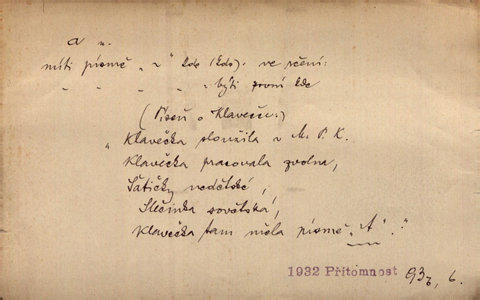 a n.
míti písmě „a“ kde (kdo). ve rčení:
" " " " býti první kde
(Píseň o Klavečce:)
„Klavečka sloužila v M. P. K.
Klavečka pracovala zvolna,
Šatičky nedělské,
Slečinka sovětská,
Klavečka tam měla písmě „A“.“
1932 Přítomnost 6.